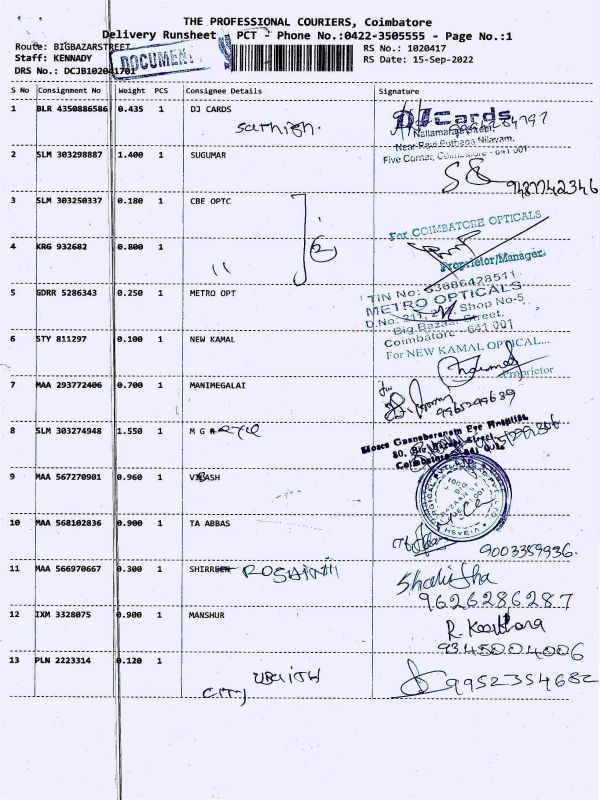 THE PROFESSIONAL COURIERS, Coimbatore
Delivery Runsheet - PCT - Phone No.:0422-3505555 - Page No.:1
Route: BIGBAZARSTREET
RS No.: 1020417
Staff: KENNADY
DOCUMENT
RS Date: 15-Sep-2022
DRS No.: DCJB102041701
S No Consignment No Weight PCS Consignee Details Signature
1 BLR 4350886586 0.435 1 DJ CARDS
DJ Cards
Nattamai Street,
Five Corner, Coimbatore - 641 001
2 SLM 303298887 1.400 1 SUGUMAR
9487742346
3 SLM 303250337 0.180 1 CBE OPTC
For COIMBATORE OPTICALS
4 KRG 932682 0.800 1
"
Proprietor/Manager
5 GDRR 5286343 0.250 1 METRO OPT
TIN No: 33686428511
METRO OPTICALS
Shop No-5
Big Bazaar Street,
Coimbatore - 641 001
6 STY 811297 0.100 1 NEW KAMAL
For NEW KAMAL OPTICAL...
Proprietor
7 MAA 293772406 0.700 1 MANIMEGALAI
8 SLM 303274948 1.550 1 M G
Moses Gnanabaranam Eye Hospital
80, Big Bazaar Street
9 MAA 567270901 0.960 1 VIKASH
10 MAA 568102836 0.900 1 TA ABBAS
9003359936.
11 MAA 566970667 0.300 1 SHIRREEN ROSHINI
9626286287
12 IXM 3328075 0.900 1 MANSHUR
9345004006
13 PLN 2223314 0.120 1
CITY
9952354682